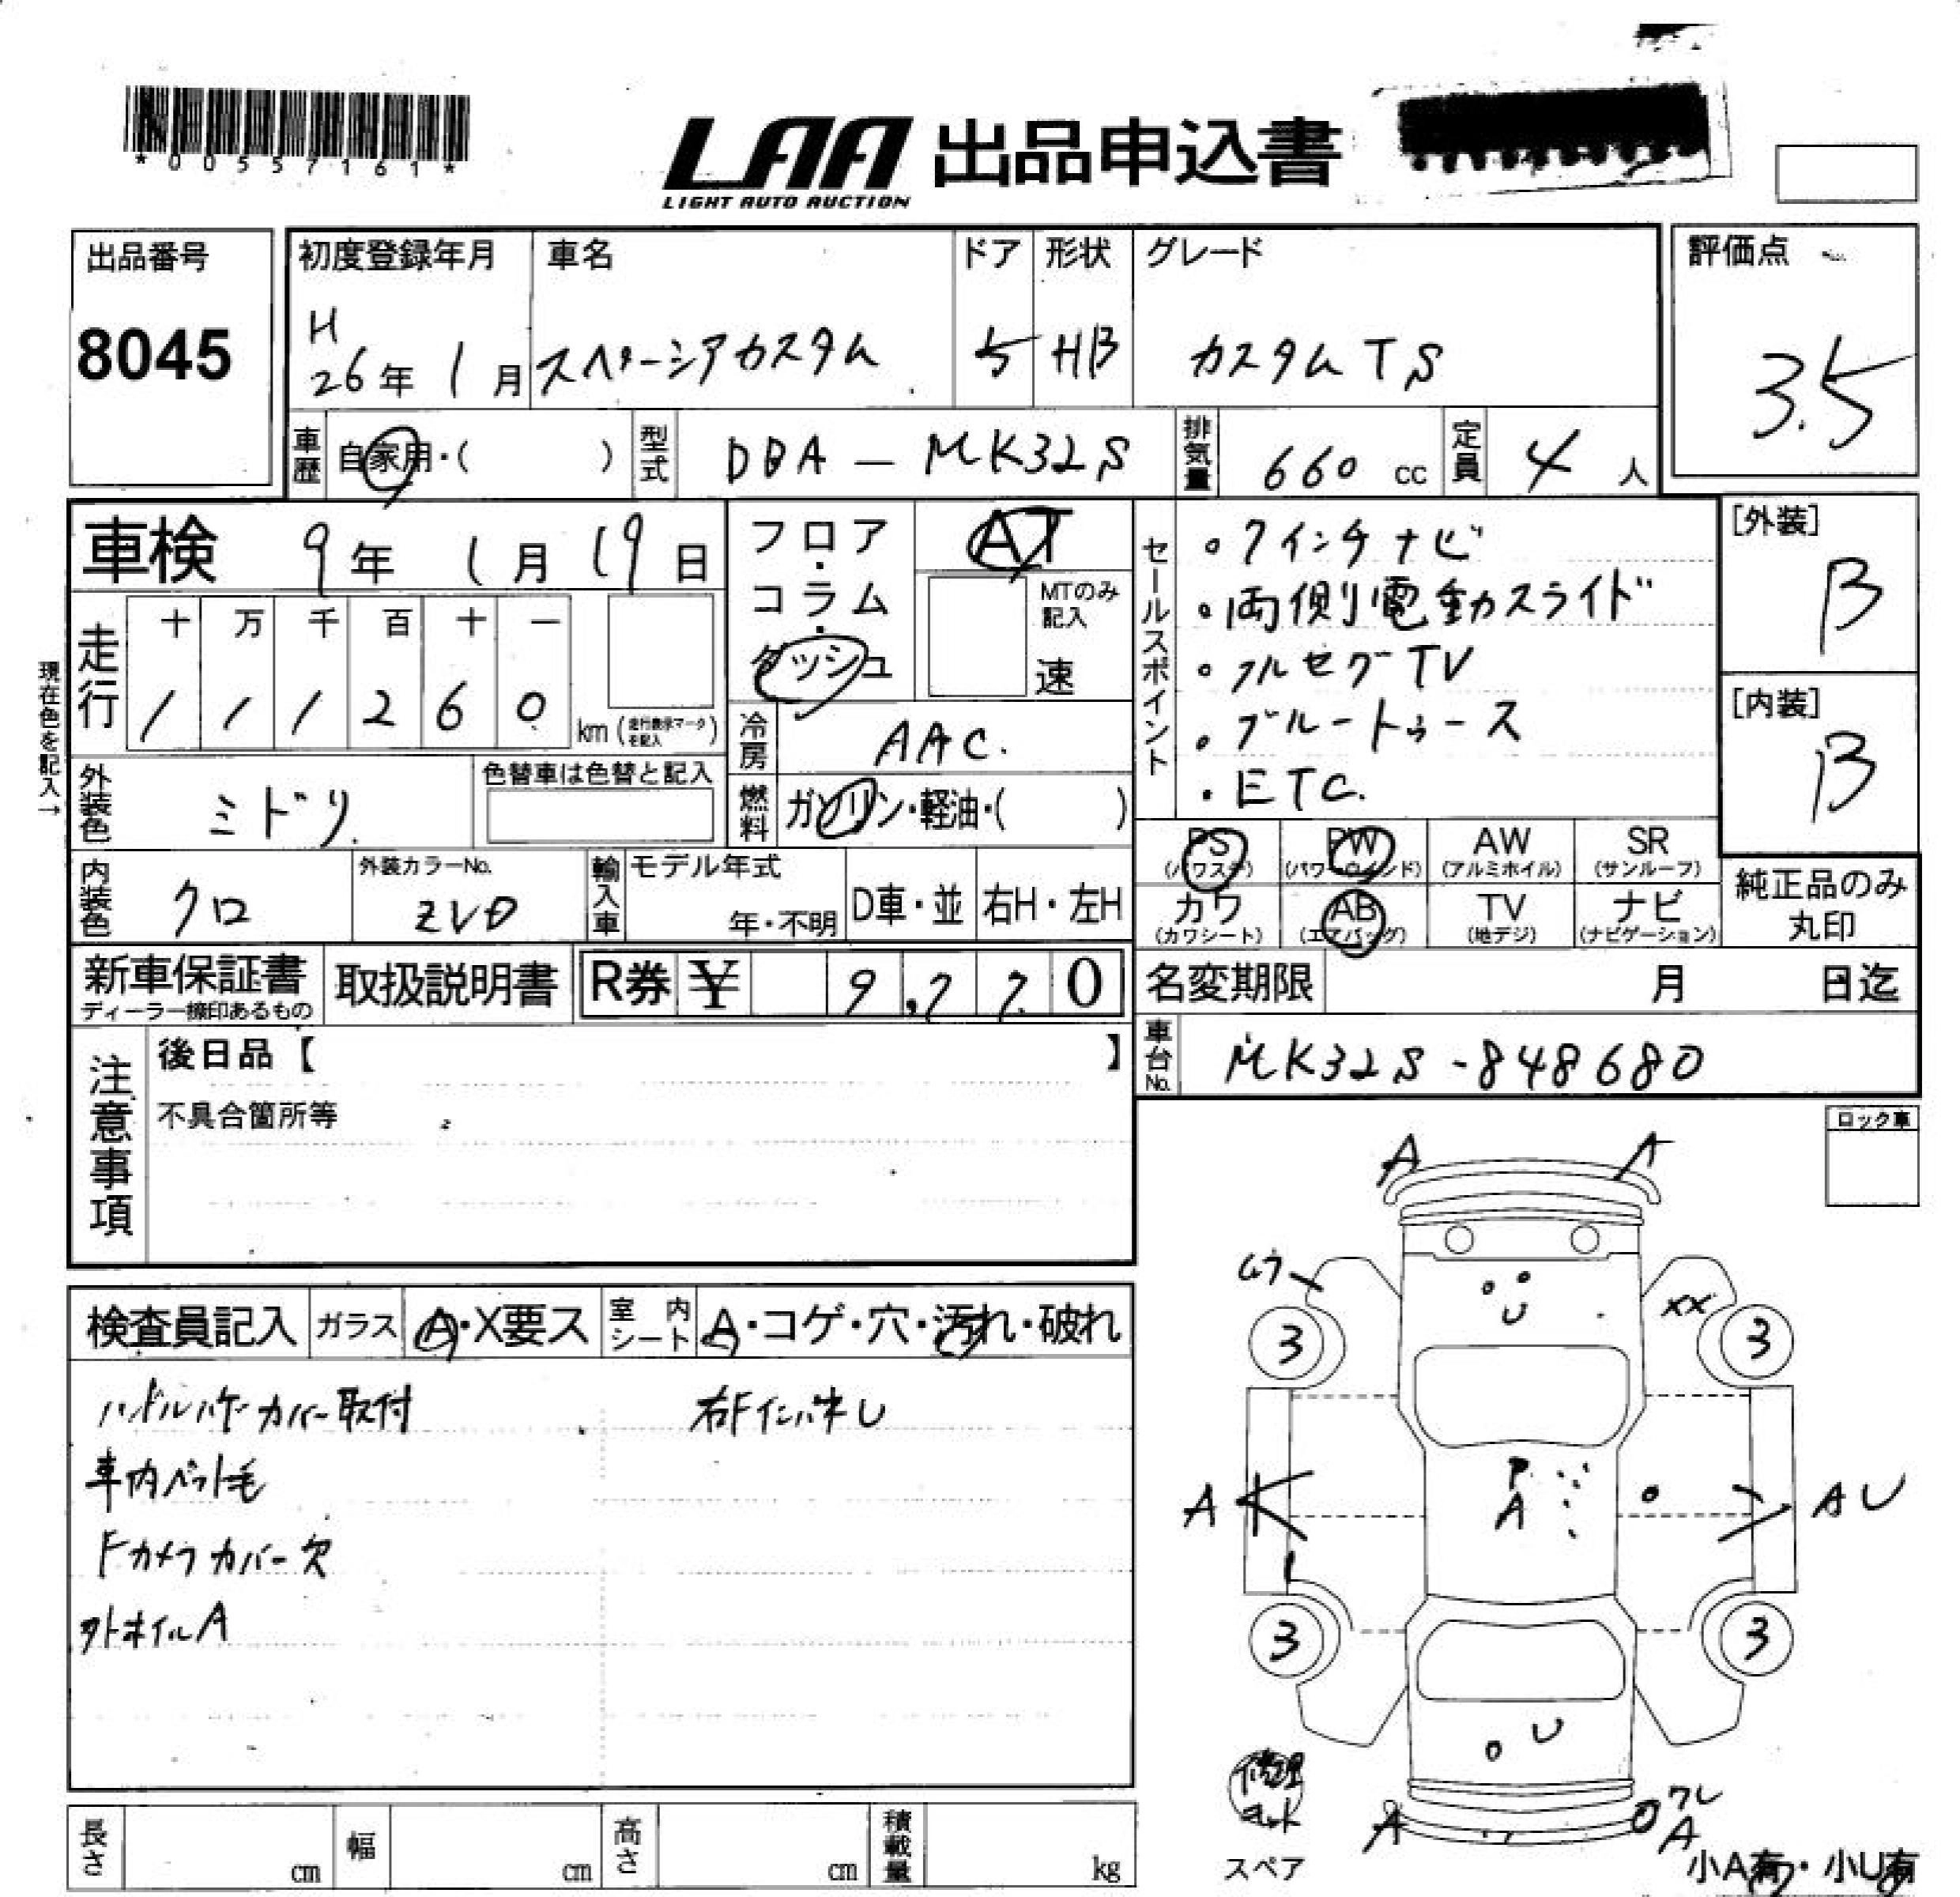 *00557161*
LAA 出品申込書
LIGHT AUTO AUCTION
出品番号
8045
初度登録年月
H
26年 1月
車名
スペーシアカスタム
ドア
5
形状
HB
グレード
カスタムTS
評価点
3.5
車歴
自家用・( )
型式
DBA-MK32S
排気量
660 cc
定員
4 人
車検 9年 1月 19日
フロア・コラム・ダッシュ
AT
MTのみ記入
速
セールスポイント
・7インチナビ
・両側電動スライド
・フルセグTV
・ブルートゥース
・ETC.
[外装]
B
[内装]
B
走行
十 万 千 百 十 一
1 1 1 2 6 0
km(走行表示マークを記入)
冷房
AAC.
現在色を記入→
外装色
ミドリ
色替車は色替と記入
燃料
ガソリン・軽油・( )
PS
(パワステ)
PW
(パワーウインド)
AW
(アルミホイル)
SR
(サンルーフ)
カワ
(カワシート)
AB
(エアバッグ)
TV
(地デジ)
ナビ
(ナビゲーション)
純正品のみ
丸印
内装色
クロ
外装カラーNo.
ZVD
輸入車
モデル年式
年・不明
D車・並
右H・左H
新車保証書
ディーラー捺印あるもの
取扱説明書
R券 ¥ 9,770
名変期限 月 日迄
車台No.
MK32S-848680
注意事項
後日品【 】
不具合箇所等
ロック車
検査員記入
ガラス
A・X要ス
室内シート
A・コゲ・穴・汚れ・破れ
ハンドルハゲ カバー取付
右Fインパネ U
車内ペット毛
Fカメラカバー欠
外ホイルA
A A
ムラ
U
XX
3 3
P
A
A
AU
3 3
U
修理キット
スペア
A
ワレ
A
小A有・小U有
長さ cm
幅 cm
高さ cm
積載量 kg